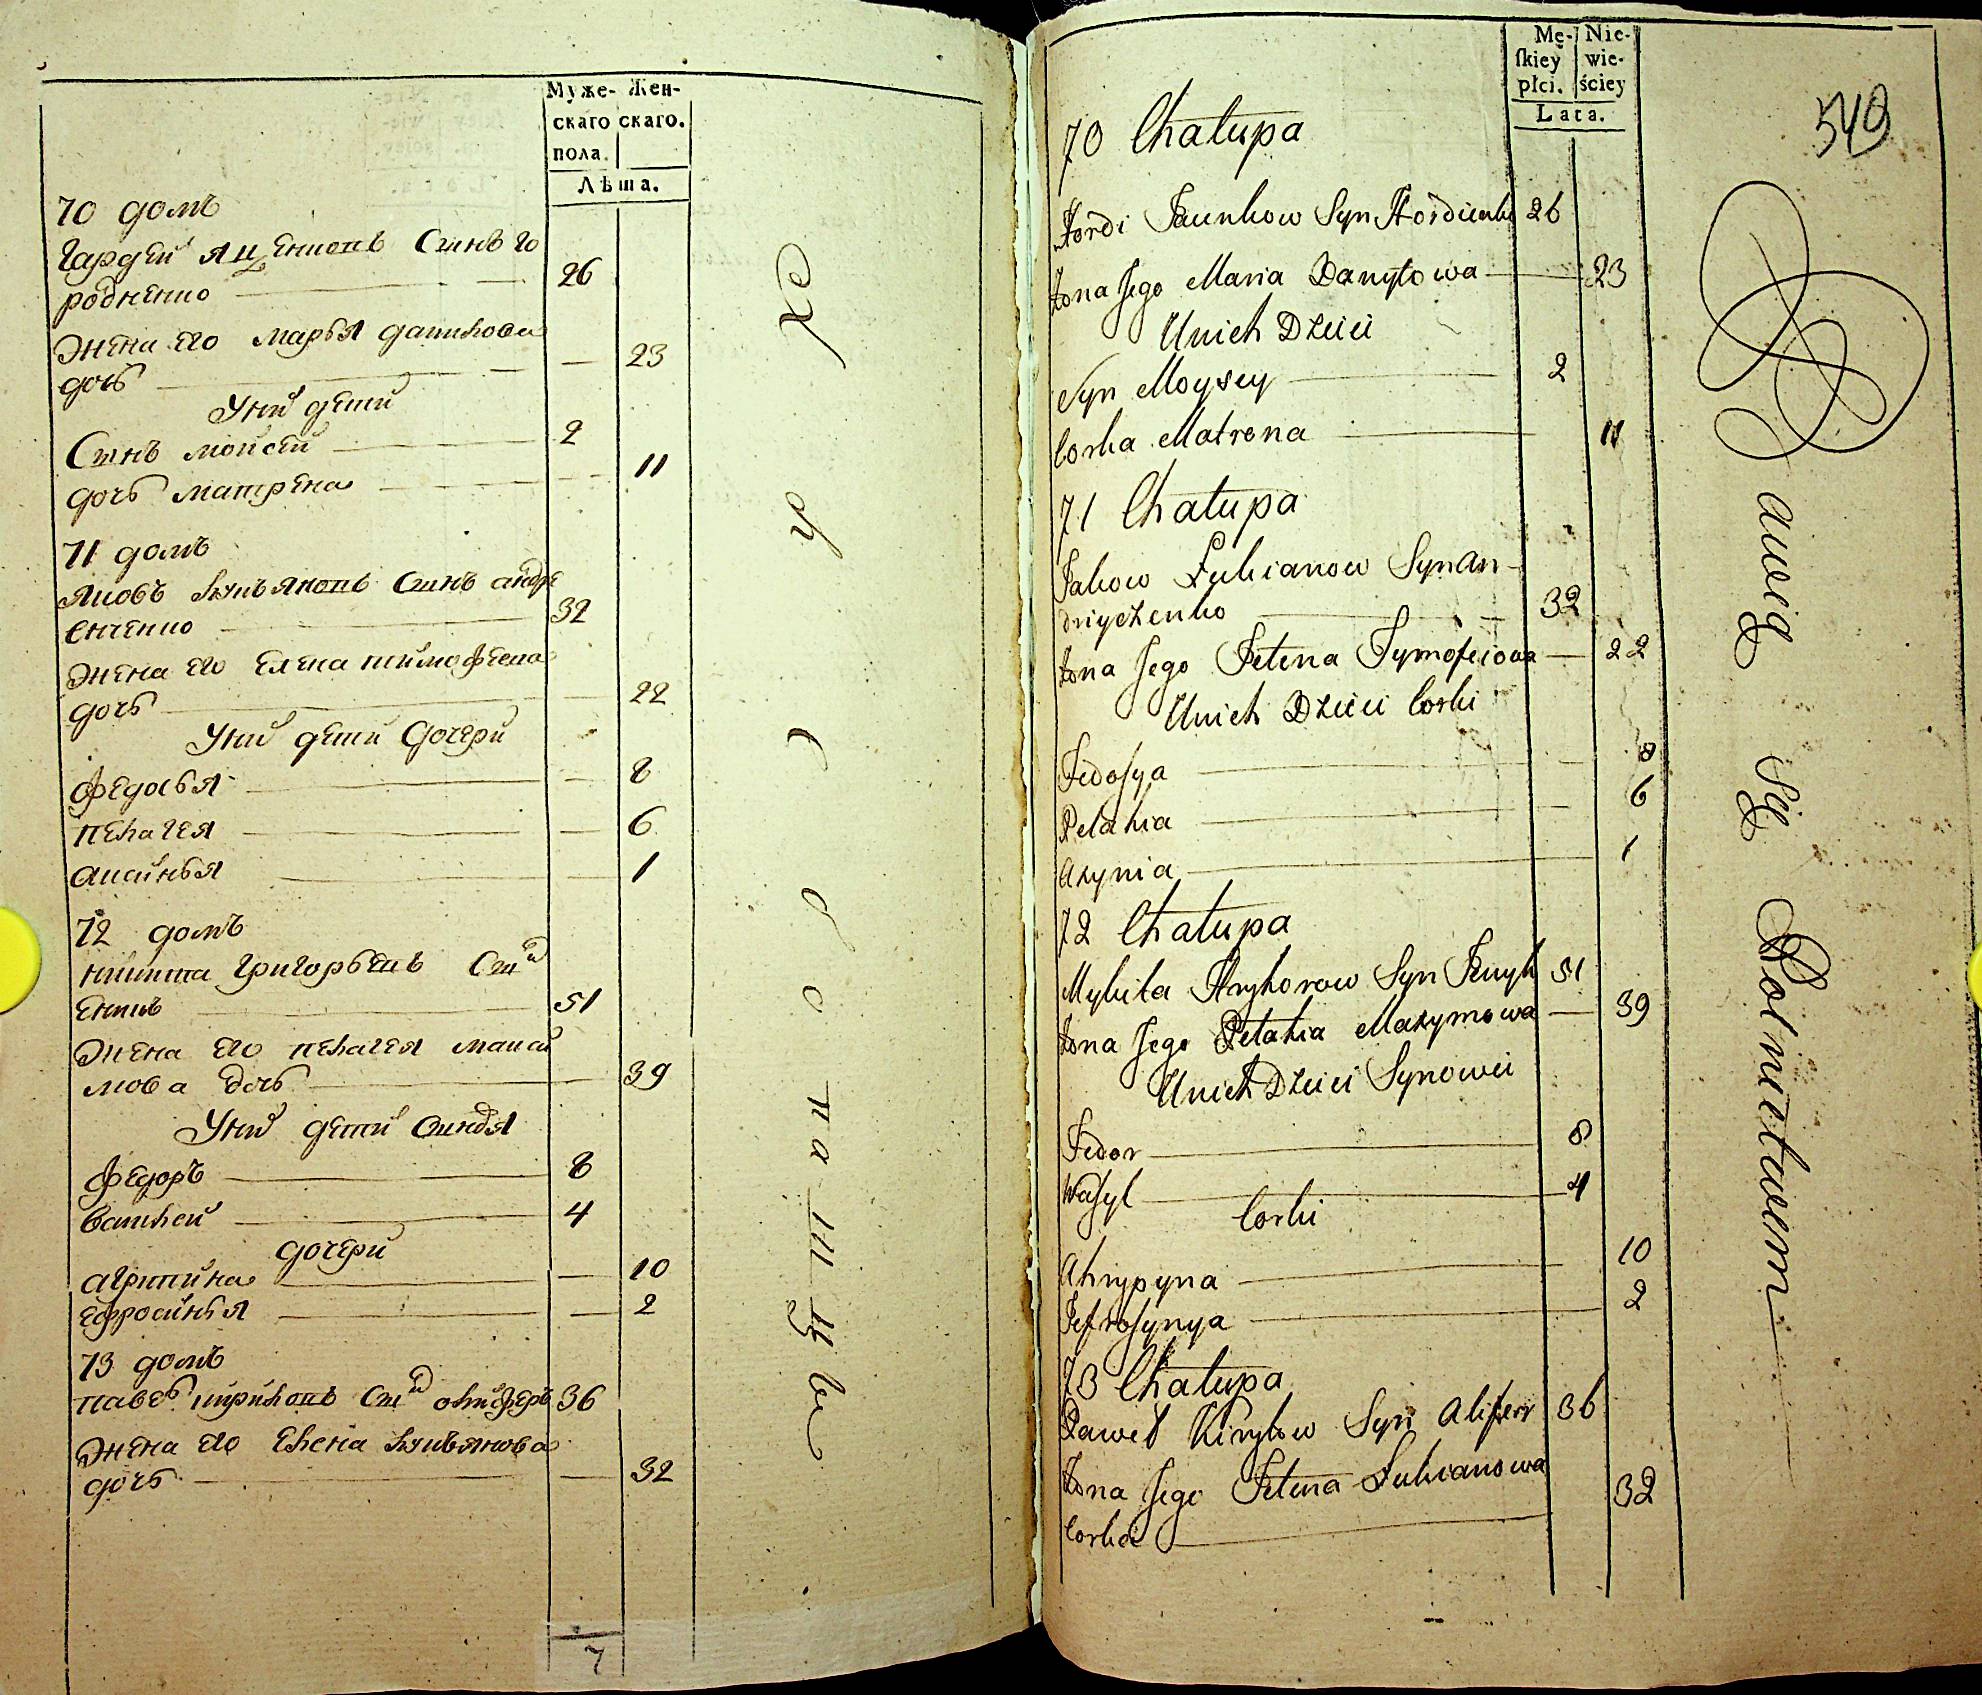 Муже- Жен-
скаго скаго.
пола.
Лѣта.
70 домъ
Гардей Яценковъ Сынъ го
родненко 26
Жена его марья данилова
дочь 23
У них дети
Сынъ мойсей 2
дочь матрена 11
71 домъ
Яковъ лукъяновъ Сынъ андре
енченко 32
Жена его Елена тимофеева
дочь 22
У них дети дочери
федосья 8
пелагея 6
аксинья 1
72 домъ
никита григорьевъ Сынъ
51
Жена его пелагея макси
мова дочь 39
У них дети сыновья
федоръ 8
василей 4
дочери
агрипина 10
ефросинья 2
73 домъ
павелъ кириловъ Сынъ олиферъ 36
Жена его Елена лукъянова
дочь 32
7
Mę- Nie-
skiey wie-
płci. ściey
Lata.
549
70 Chałupa
Hordi Jacunkow Syn Hordienko 26
Żona Jego Maria Daniłowa 23
U nich Dzieci
Syn Moysey 2
Corka Matrena 11
71 Chałupa
Jakow Łukianow Syn An-
driyczenko 32
Żona Jego Jelena Tymofeiowa 22
U nich Dzieci Corki
Fedosya 8
Pelahia 6
Axynia 1
72 Chałupa
Mykita Hryhorow Syn 51
Żona Jego Pelahia Maxymowa 39
U nich Dzieci Synowei
Fedor 8
Wasyl 4
Corki
Ahrypyna 10
Jefrosynya 2
73 Chałupa
Paweł Kiryłow Syn Alifer 36
Żona Jego Jelena Łukianowa
Corka 32